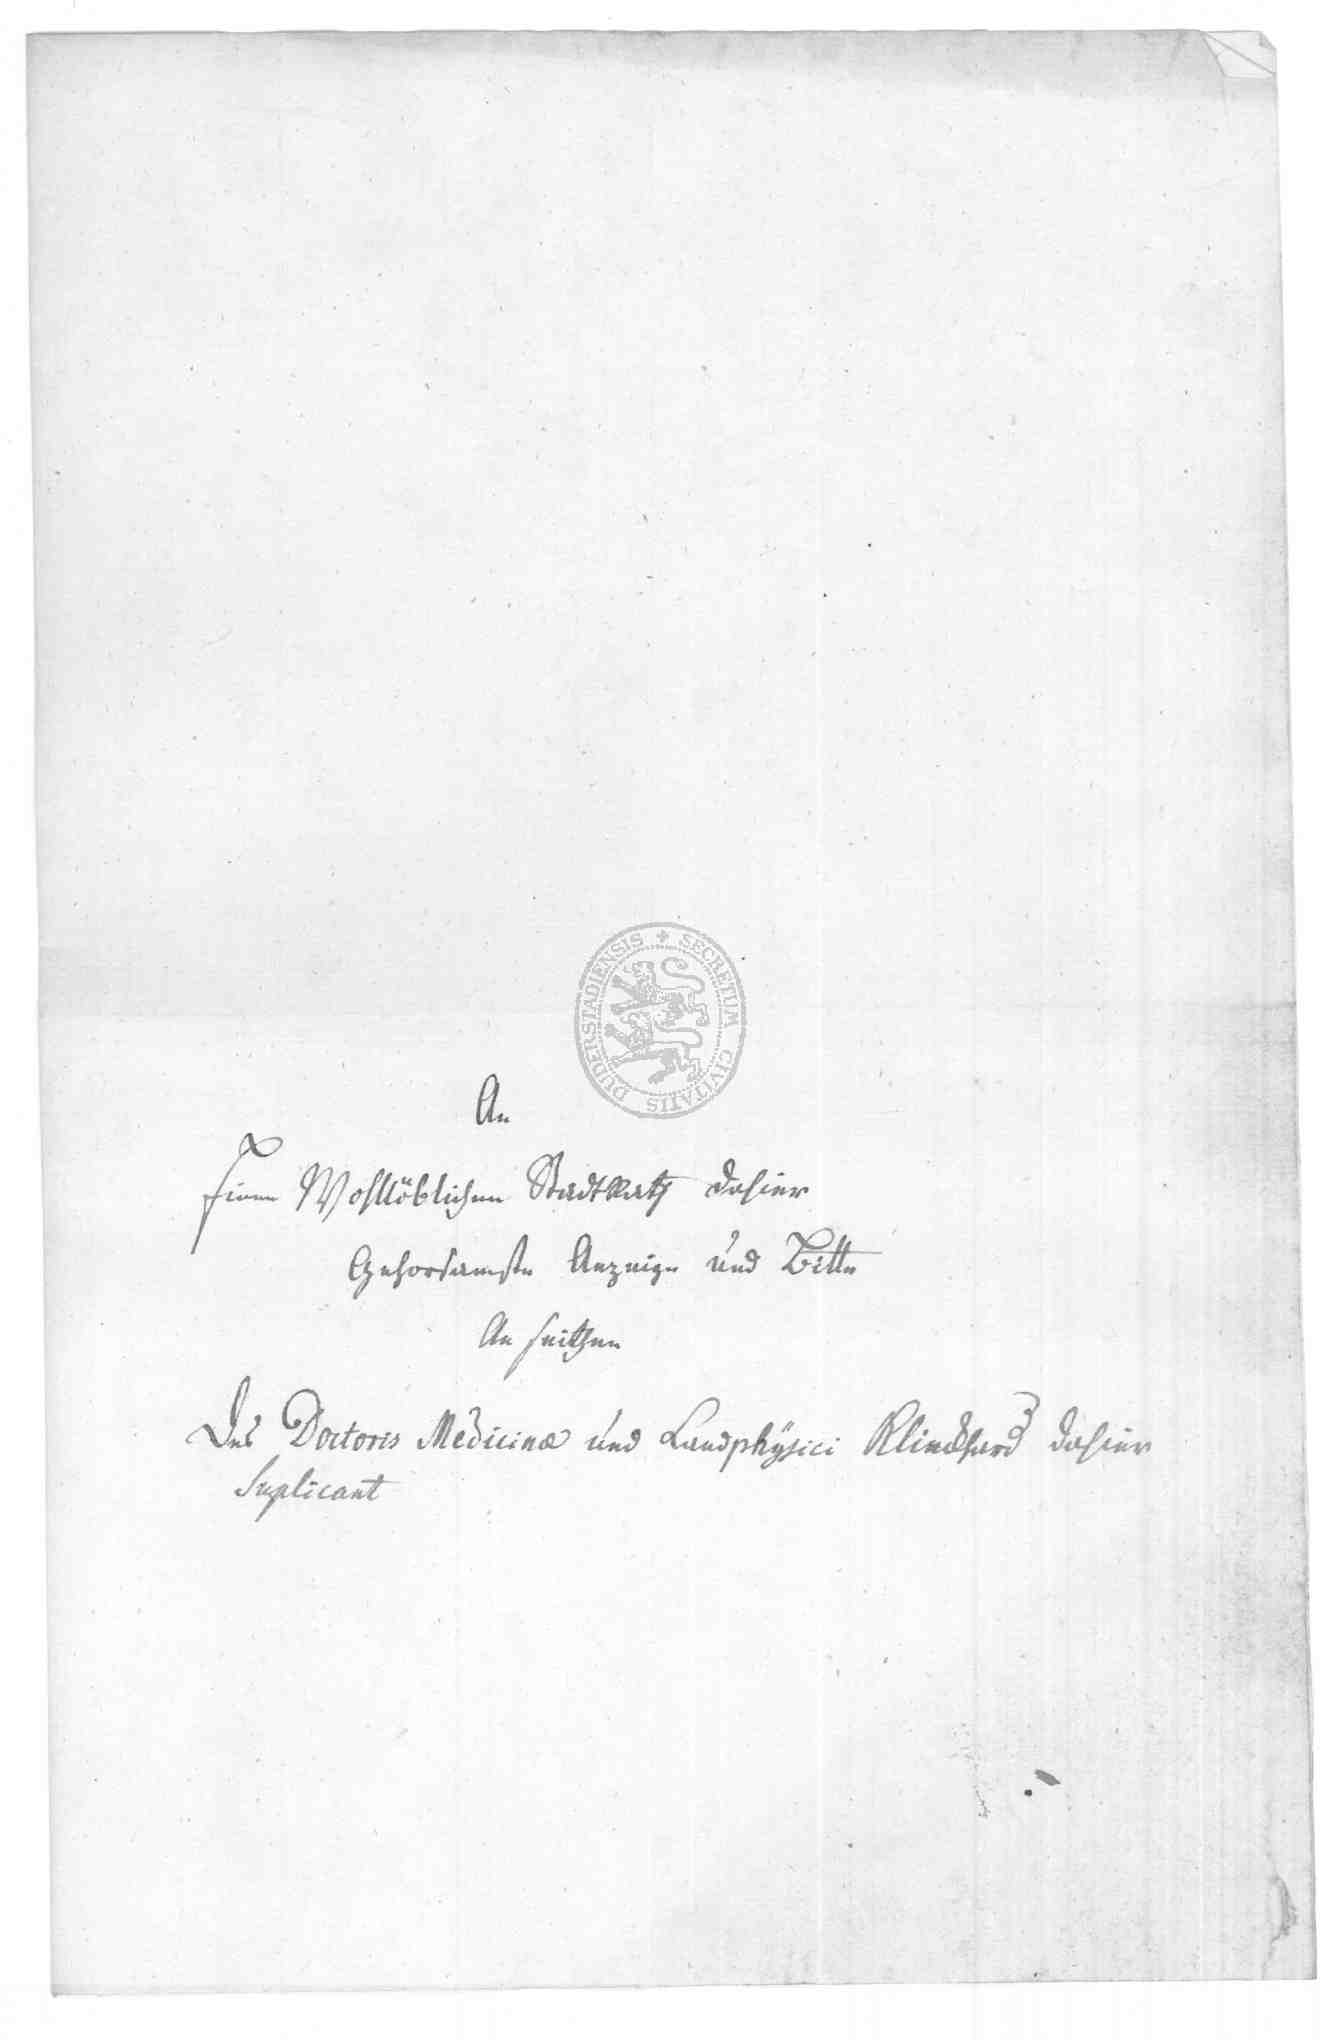 SECRETUM CIVITATIS DUDERSTADIENSIS
An
Einen Wohllöblichen Stadtrath dahier
Gehorsamste Anzeige und Bitte
An seithen
Des Doctoris Medicinæ und Landphÿsici Klinckhard dahier
Suplicant